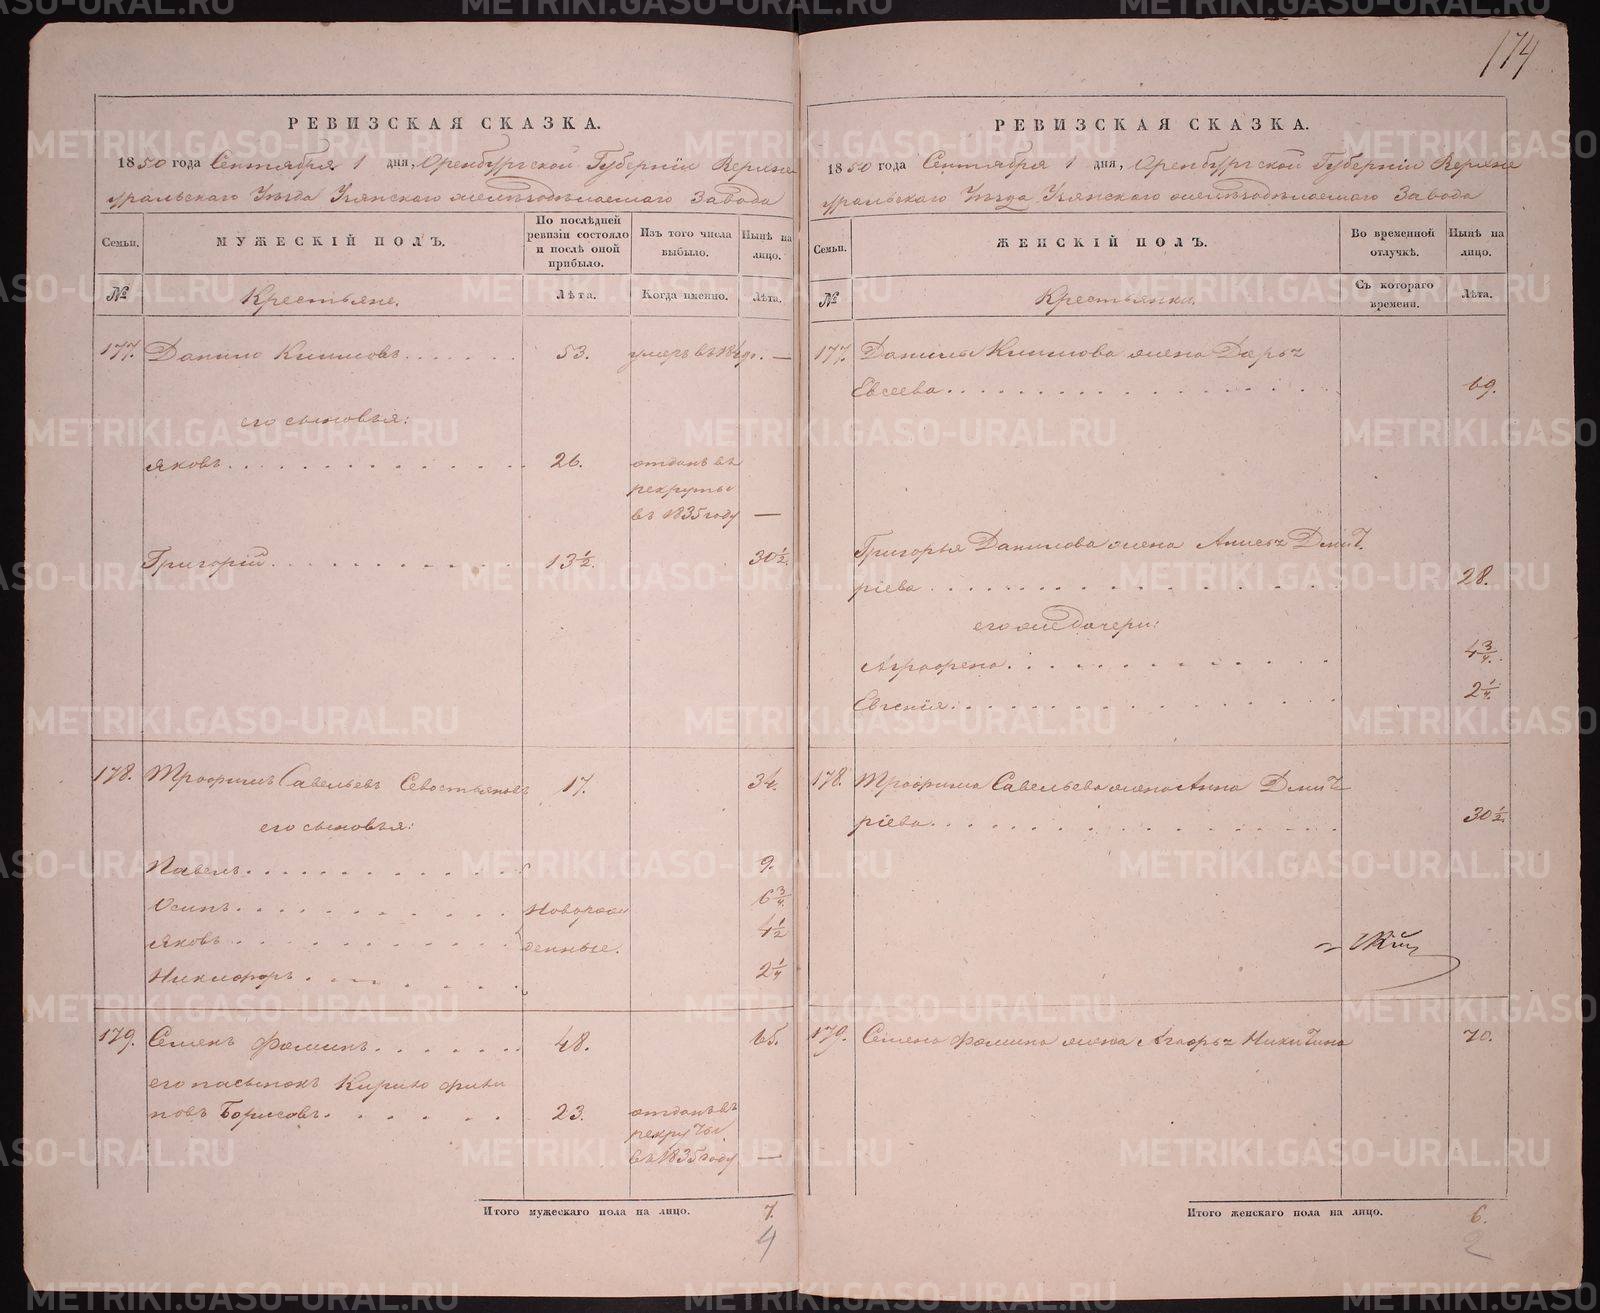 174
РЕВИЗСКАЯ СКАЗКА.
1850 года Сентября 1 дня, Оренбургской Губернiи Верхне
уральскаго Уѣзда Узянскаго желѣзодѣлаемаго Завода
Семьи.
МУЖЕСКIЙ ПОЛЪ.
По послѣдней ревизiи состояло и послѣ оной прибыло.
Изъ того числа выбыло.
Нынѣ на лицо.
№
Крестьяне.
Лѣта.
Когда именно.
Лѣта.
177. Данило Климовъ 53. умеръ въ —
его сыновья:
Яковъ 26. отданъ въ
рекруты
въ 1835 году —
Григорiй 13½. 30½.
178. Трофимъ Савельевъ Севостьяновъ 17. 34.
его сыновья:
Павелъ 9.
Осипъ Новорож 6¾.
Яковъ денные. 4½
Никифоръ 2¼
179. Семенъ Фоминъ 48. 65.
его пасынокъ Кирило Фили
повъ Борисовъ 23. отданъ въ
рекруты
въ 1835 году —
Итого мужескаго пола на лицо. 7.
4
РЕВИЗСКАЯ СКАЗКА.
1850 года Сентября 1 дня, Оренбургской Губернiи Верхне
уральскаго Уѣзда Узянскаго желѣзодѣлаемаго Завода
Семьи.
ЖЕНСКIЙ ПОЛЪ.
Во временной отлучкѣ.
Нынѣ на лицо.
№
Крестьянки.
Съ котораго времени.
Лѣта.
177. Данилы Климова жена Дарья
Евсеева 69.
Григорья Данилова жена Анисья Дмит
рiева 28.
его же дочери:
Аграфена 4¾.
Евгенiя 2¼.
178. Трофима Савельева жена Анна Дмит
рiева 30½.
179. Семена Фомина жена Агафья Никитина 70.
Итого женскаго пола на лицо. 6.
2
METRIKI.GASO-URAL.RU